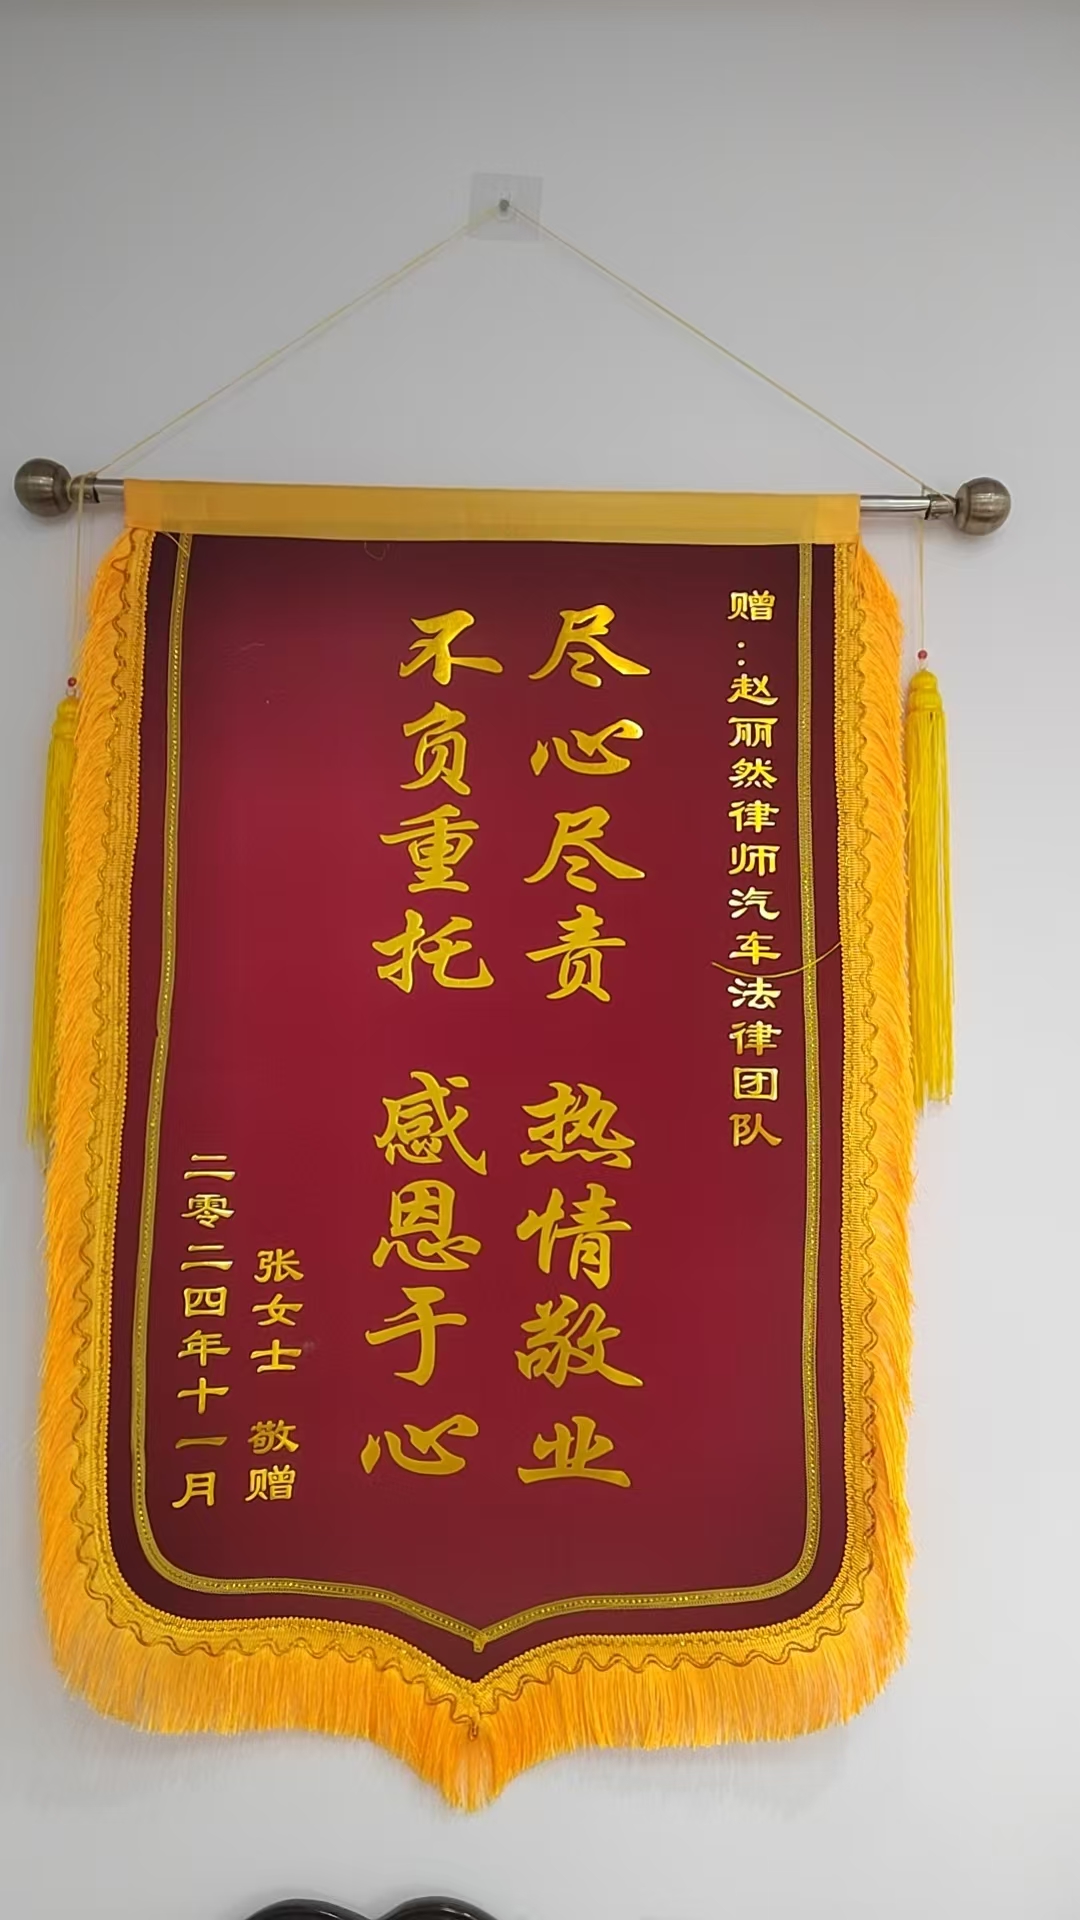 赠:赵丽然律师汽车法律团队
尽心尽责 热情敬业
不负重托 感恩于心
张女士 敬赠
二零二四年十一月